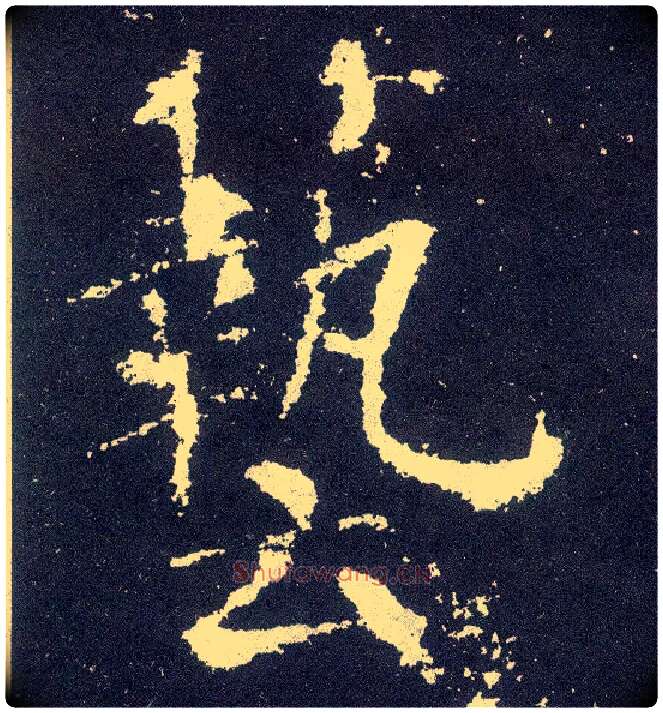 藝
Shufawang.CN